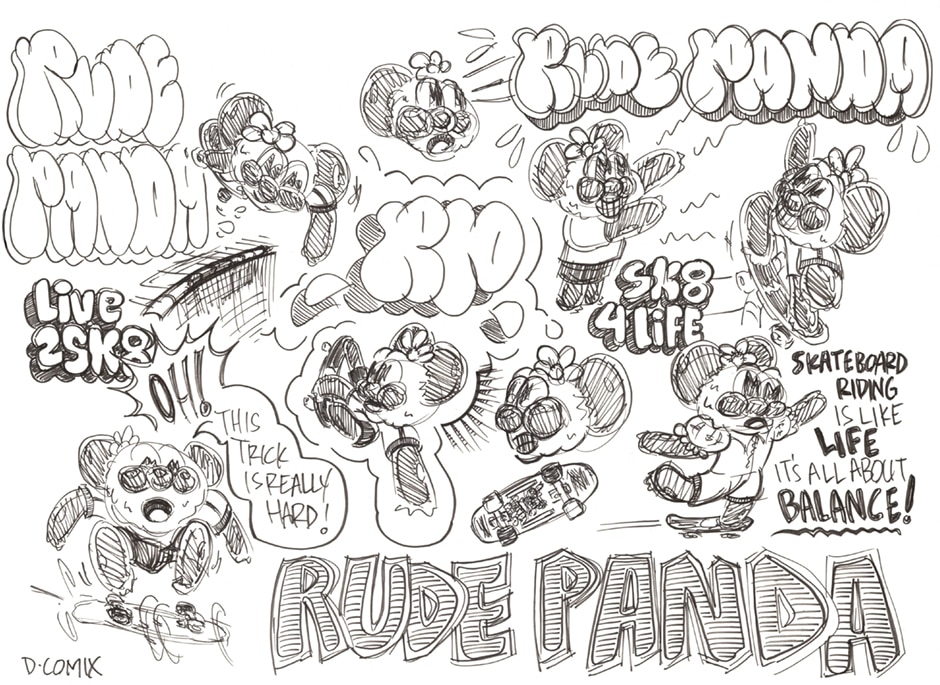 RUDE
PANDA
RUDE PANDA
RP
LivE
2SK8
SK8
4 LiFE
OH!
THIS
TRICK
IS REALLY
HARD!
SKATEBOARD
RIDING
IS LIKE
LIFE
IT'S ALL ABOUT
BALANCE!
RUDE PANDA
D·COMIX